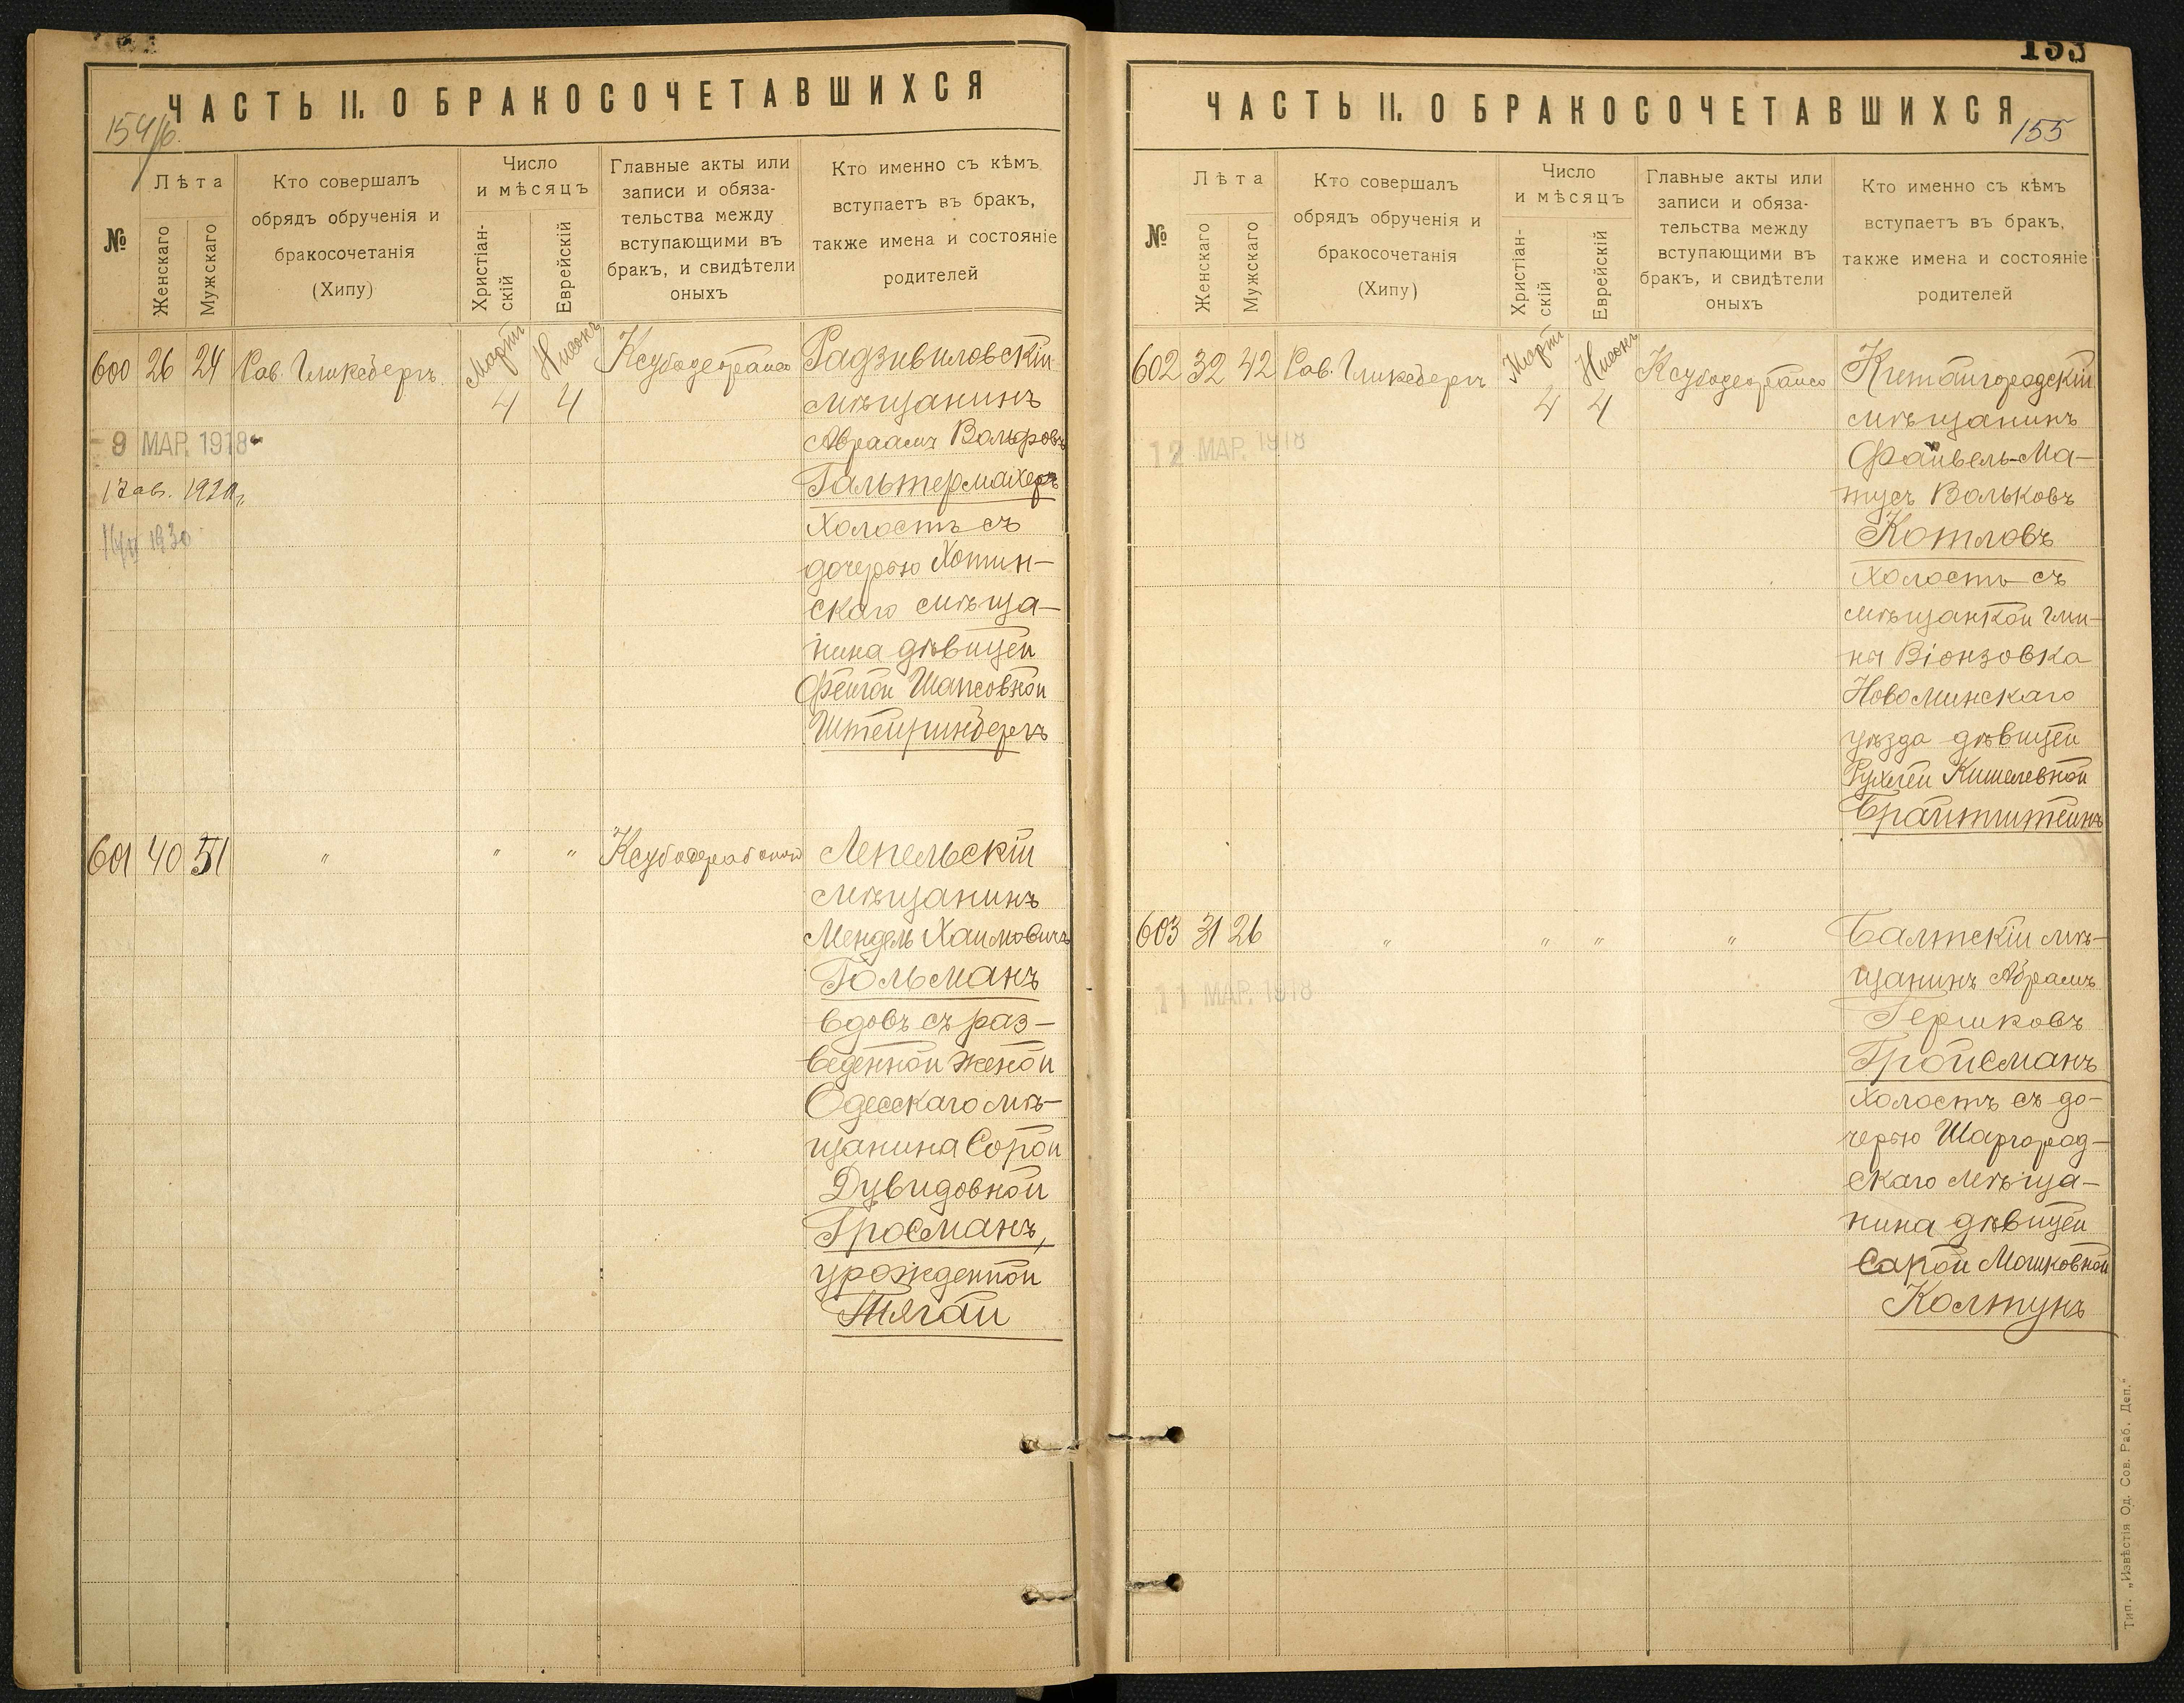 ЧАСТЬ II. О БРАКОСОЧЕТАВШИХСЯ
154/б.
№
Лѣта
Женскаго
Мужскаго
Кто совершалъ
обрядъ обрученія и
бракосочетанія
(Хипу)
Число
и мѣсяцъ
Христіан-
скій
Еврейскій
Главные акты или
записи и обяза-
тельства между
вступающими въ
бракъ, и свидѣтели
оныхъ
Кто именно съ кѣмъ
вступаетъ въ бракъ,
также имена и состояніе
родителей
600 26 24 Рав. Гликсбергъ Мартъ 4 Нисонъ 4
Радзивиловскій
мѣщанинъ
Авраамъ Вольфовъ
Гальтермахеръ
холостъ съ
дочерью Хотин-
скаго мѣща-
нина дѣвицей
Фейгой Шапсовной
Штейринбергъ
9 МАР. 1918
1930
601 40 51 " " "
Лепельскій
мѣщанинъ
Мендель Хаимовичъ
Гольманъ
вдовъ съ раз-
веденной женой
Одесскаго мѣ-
щанина Сорой
Дувидовной
Гросманъ,
урожденной
Тягай
153
ЧАСТЬ II. О БРАКОСОЧЕТАВШИХСЯ
155
№
Лѣта
Женскаго
Мужскаго
Кто совершалъ
обрядъ обрученія и
бракосочетанія
(Хипу)
Число
и мѣсяцъ
Христіан-
скій
Еврейскій
Главные акты или
записи и обяза-
тельства между
вступающими въ
бракъ, и свидѣтели
оныхъ
Кто именно съ кѣмъ
вступаетъ въ бракъ,
также имена и состояніе
родителей
602 32 42 Рав. Гликсбергъ Мартъ 4 Нисонъ 4
мѣщанинъ
Файвель-Ма-
тусъ Вольковъ
Котловъ
холостъ съ
мѣщанкой Гми-
ны Віонзовка
Новоминскаго
уѣзда дѣвицей
Рухлей Кишелевной
Брайтштейнъ
12 МАР. 1918
603 31 26 " " " "
Балтскій мѣ-
щанинъ Абрамъ
Гершковъ
Гройсманъ
холостъ съ до-
черью Шаргород-
скаго мѣща-
нина дѣвицей
Сарой Мошковной
Колтунъ
11 МАР. 1918
Тип. „Извѣстія Од. Сов. Раб. Деп."